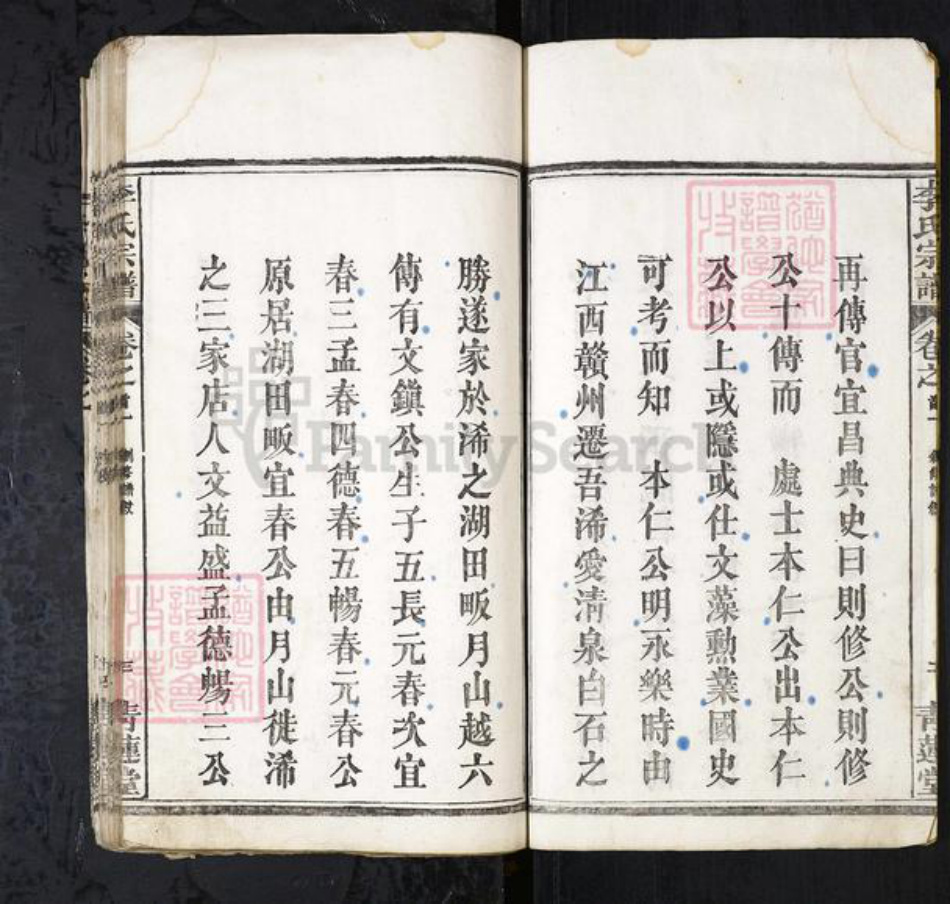 李氏宗譜
卷之
青蓮堂
再傳官宜昌典史曰則修公則修
公十傳而　處士本仁公出本仁
公以上或隱或仕文藻勲業國史
可考而知　本仁公明永樂時由
江西贛州遷吾浠愛清泉白石之
勝遂家於浠之湖田畈月山越六
傳有文鎭公生子五長元春次宜
春三孟春四德春五暢春元春公
原居湖田畈宜春公由月山徙浠
之三家店人文益盛孟德暢三公
李氏宗譜
卷之
三
青蓮堂
FamilySearch